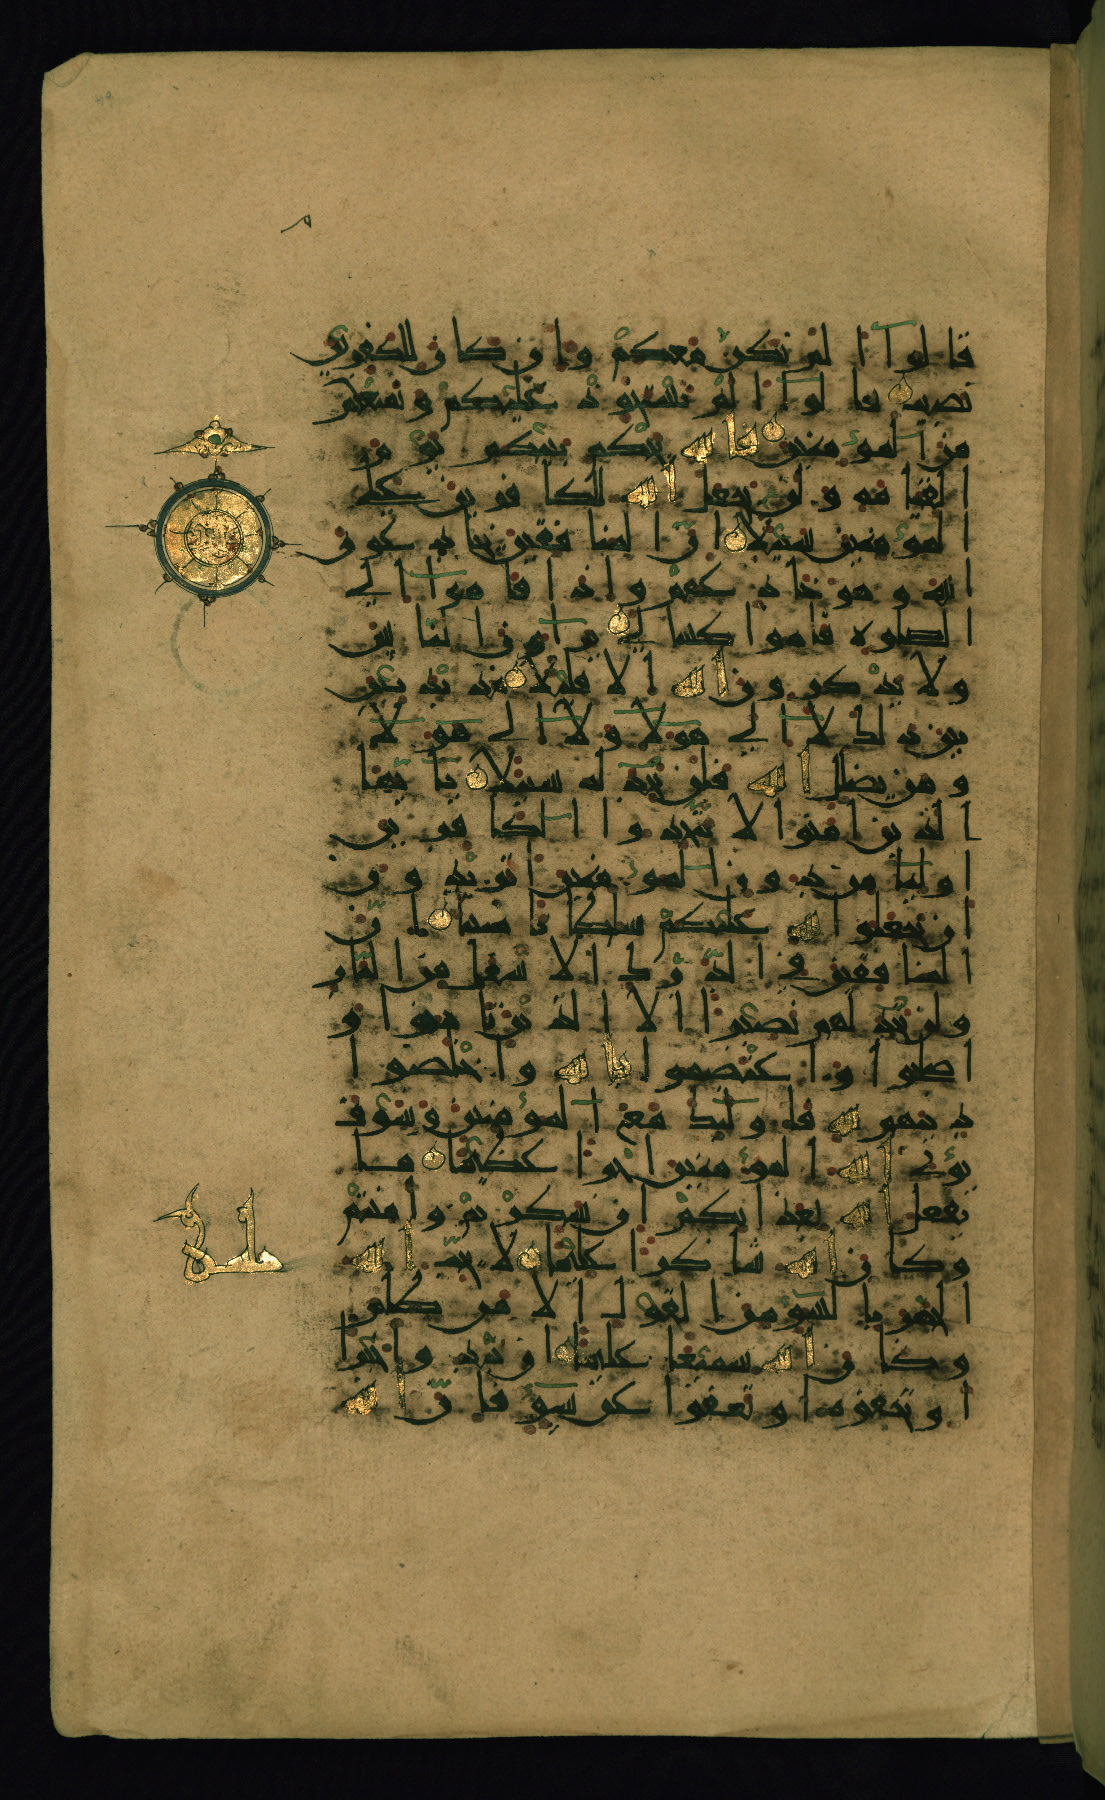 م
قالوا ألم نكن معكم وإن كان للكفرين
نصيب قالوا ألم نستحوذ عليكم ونمنعكم
من المؤمنين فالله يحكم بينكم يوم
القيامة ولن يجعل الله للكافرين على
المؤمنين سبيلا إن المنافقين يخادعون
الله وهو خادعهم وإذا قاموا إلى
الصلوة قاموا كسالى يراءون الناس
ولا يذكرون الله إلا قليلا مذبذبين
بين ذلك لا إلى هؤلاء ولا إلى هؤلاء
ومن يضلل الله فلن تجد له سبيلا يا أيها
الذين آمنوا لا تتخذوا الكافرين
أولياء من دون المؤمنين أتريدون
أن تجعلوا لله عليكم سلطانا مبينا إن
المنافقين في الدرك الأسفل من النار
ولن تجد لهم نصيرا إلا الذين تابوا و
أصلحوا واعتصموا بالله وأخلصوا
دينهم لله فأولئك مع المؤمنين وسوف
يؤت الله المؤمنين أجرا عظيما ما
يفعل الله بعذابكم إن شكرتم وآمنتم
وكان الله شاكرا عليما لا يحب الله
الجهر بالسوء من القول إلا من ظلم
وكان الله سميعا عليما إن تبدوا خيرا
أو تخفوه أو تعفوا عن سوء فإن الله